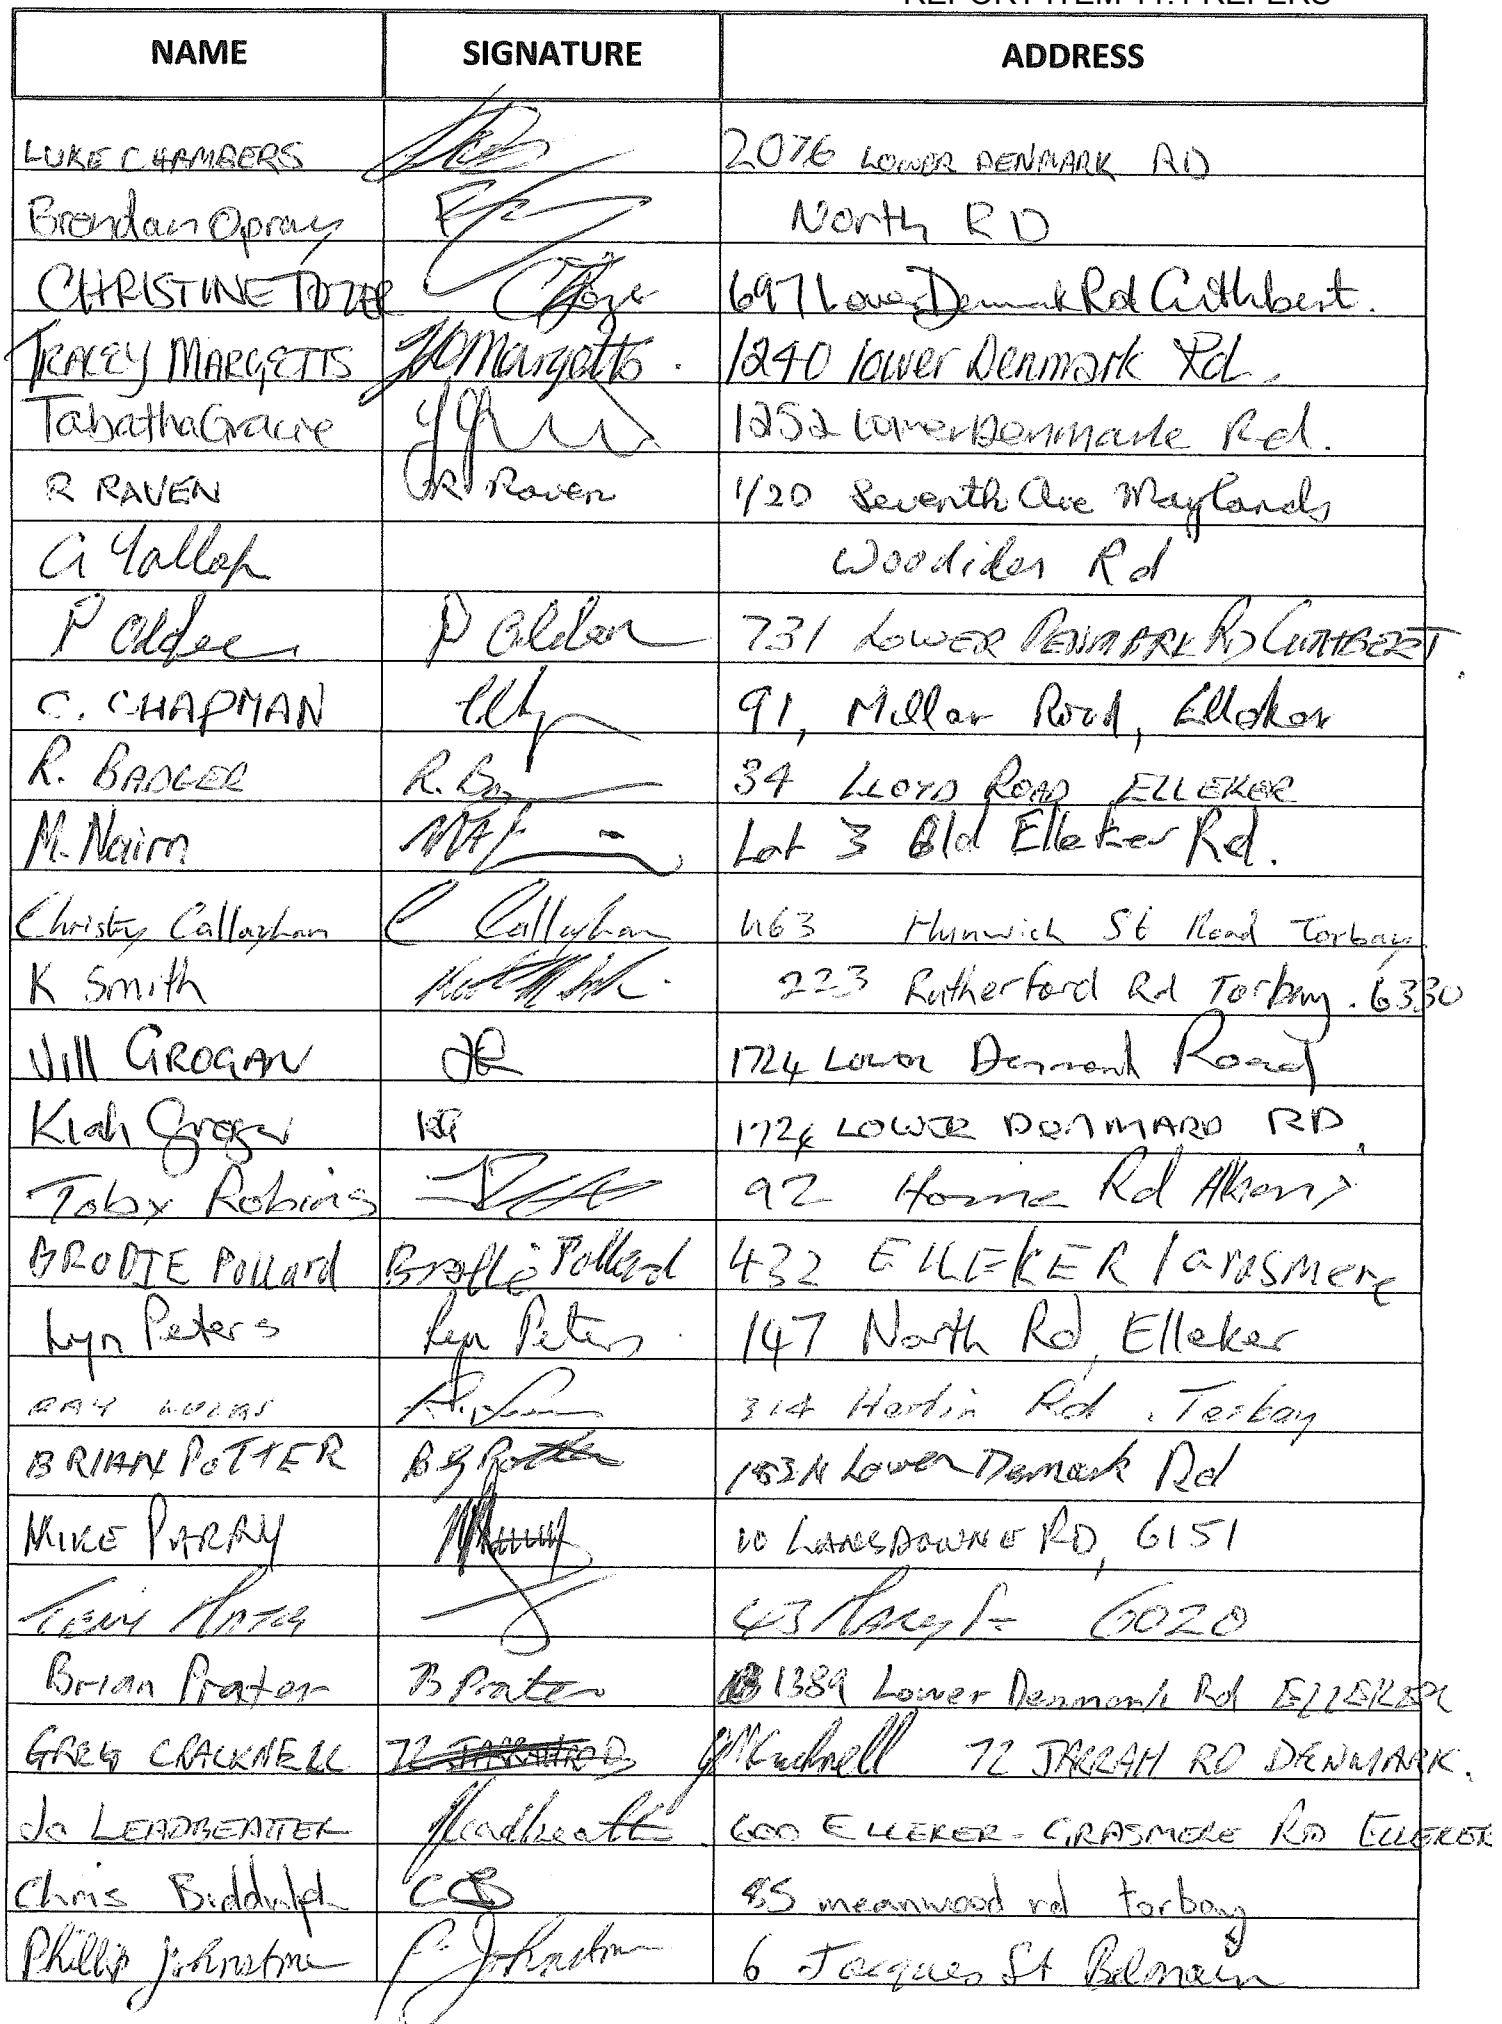 NAME SIGNATURE ADDRESS
LUKE CHAMBERS 2076 LOWER DENMARK RD
Brendan Opray North RD
CHRISTINE TOZER C Tozer 697 Lower Denmark Rd Cuthbert.
TRACEY MARGETTS Margetts. 1240 lower Denmark Rd.
Tabatha Gracie 1252 Lower Denmark Rd.
R RAVEN R Raven 1/20 Seventh Ave Maylands
G Yallop Rd
P Alden P Alden 731 LOWER DENMARK RD CUTHBERT.
C. CHAPMAN 91, Millar Road, Elleker
R. BADGER R. 34 LLOYD ROAD ELLEKER
M. Nairn Lot 3 Old Elleker Rd.
Christy Callaghan C Callaghan 463 Hunwick St Road Torbay
K Smith 223 Rutherford Rd Torbay. 6330
Jill GROGAN JG 1724 Lower Denmark Road
Kiah Grogan KG 1724 LOWER DENMARD RD.
Toby Robins 92 Home Rd Albany
BRODIE Pollard Brodie Pollard 432 ELLEKER / Grasmere
Lyn Peters Lyn Peters 147 North Rd, Elleker
RAY LUCAS 314 Rd, Torbay
BRIAN POTTER B G Potter Lower Denmark Rd
MIKE PARRY 10 LANSDOWNE RD, 6151
43 6020
Brian Prater B Prater 1389 Lower Denmark Rd ELLEKER
GREG CRACKNELL 72 JARRAH RD Cracknell 72 JARRAH RD DENMARK.
Jo LEADBEATTER Leadbeatter 600 ELLEKER-GRASMERE RD ELLEKER
Chris Biddulph CB 85 meanwood rd torbay
Phillip Johnstone P. Johnstone 6 Jacques St Balmain